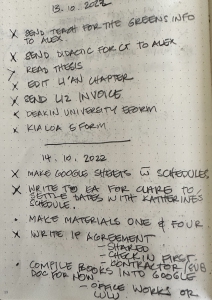 13.10.2022
X SEND TEACH FOR THE GREENS INFO
TO ALEX.
X SEND DIDACTIC FOR CT TO ALEX
X READ THESIS
X EDIT CHAPTER
X SEND INVOICE
X DEAKIN UNIVERSITY EFORM
X KIALOA S FORM
14.10.2022
X MAKE GOOGLE SHEETS W SCHEDULES.
X WRITE TO EA FOR CLARE TO
SETTLE DATES WITH KATHERINE'S
SCHEDULE.
• MAKE MATERIALS ONE & FOUR.
X WRITE IP AGREEMENT
- SHARED
- CHECK IN FIRST
- CONTRACTOR/SUB
• COMPILE BOOKS INTO GOOGLE
DOC FOR NOW
- OFFICE WORKS OR